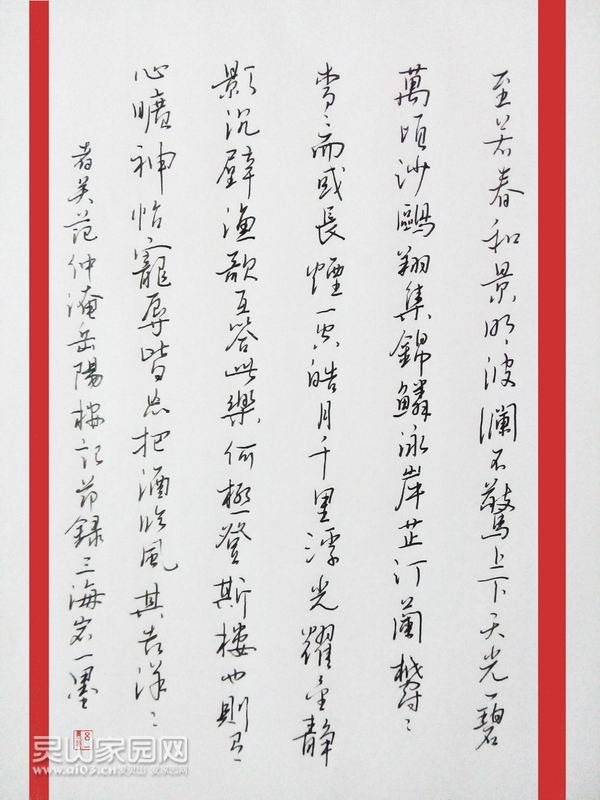 至若春和景明波瀾不驚上下天光一碧
萬頃沙鷗翔集錦鱗泳岸芷汀蘭鬱〻
青〻而或長煙一空皓月千里浮光耀金静
影沉璧漁歌互答此樂何極登斯樓也則有
心曠神怡寵辱皆忘把酒臨風其喜洋〻
范仲淹岳陽樓記節錄三海岩一墨
灵山家园网
www.qi03.cn 爱灵山 爱家园